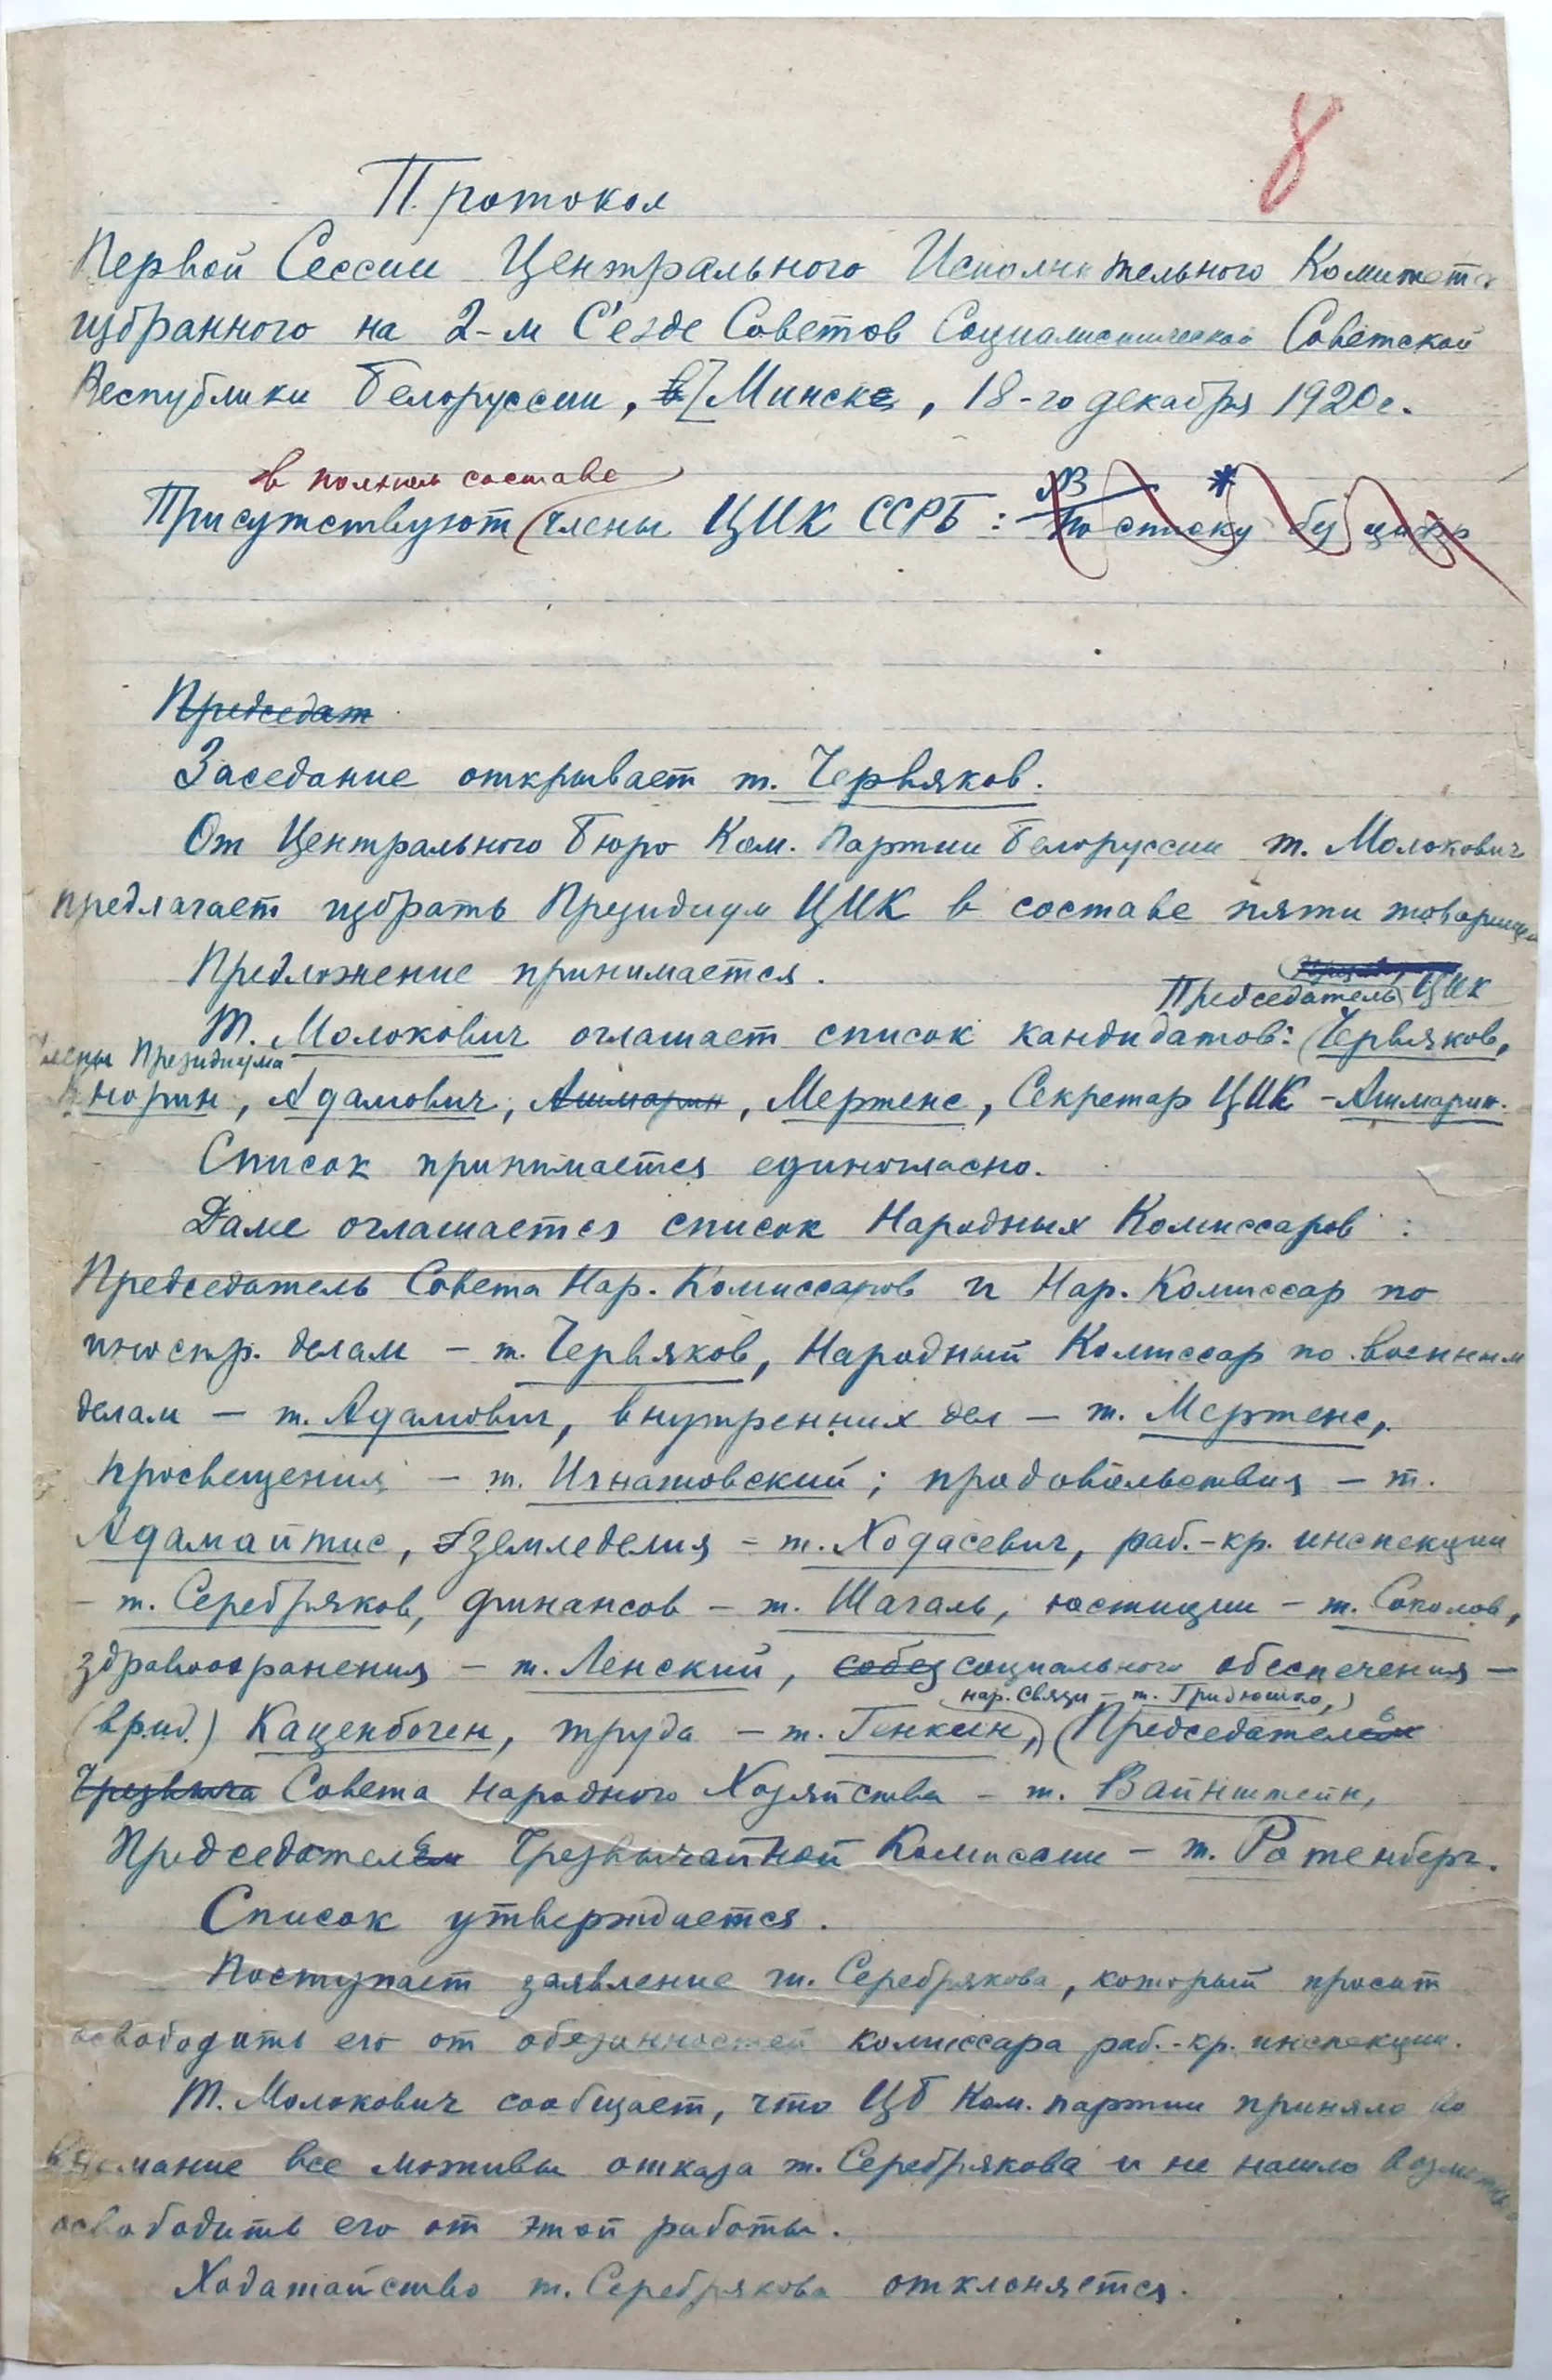 8
Протокол
Первой Сессии Центрального Исполнительного Комитета
избранного на 2-м С'езде Советов Социалистической Советской
Республики Белоруссии, в Минске, 18-го декабря 1920 г.
в полном составе
Присутствуют члены ЦИК ССРБ: по списку
Председат
Заседание открывает т. Червяков.
От Центрального Бюро Ком. Партии Белоруссии т. Молокович
предлагает избрать Президиум ЦИК в составе пяти товарищей
Предложение принимается.
Председатель ЦИК
Т. Молокович оглашает список кандидатов: Червяков,
Члены Президиума
Кнорин, Адамович, Ашмарин, Мертенс, Секретар ЦИК - Ашмарин.
Список принимается единогласно.
Далее оглашается список Народных Комиссаров:
Председатель Совета Нар. Комиссаров и Нар. Комиссар по
иностр. делам - т. Червяков, Народный Комиссар по военным
делам - т. Адамович, внутренних дел - т. Мертенс,
просвещения - т. Игнатовский; продовольствия - т.
Адамайтис, земледелия - т. Ходасевич, раб.-кр. инспекции
- т. Серебряков, финансов - т. Шагаль, юстиции - т. Соколов,
здравоохранения - т. Ленский, собез социального обеспечения -
нар. связи - т. Гридюшко,
(врид.) Каценбоген, труда - т. Генкин, Председатель
Чрезвыча Совета Народного Хозяйства - т. Вайнштейн,
Председатель Чрезвычайной Комиссии - т. Ротенберг.
Список утверждается.
Поступает заявление т. Серебрякова, который просит
освободить его от обязанностей комиссара раб.-кр. инспекции.
Т. Молокович сообщает, что ЦБ Ком. партии приняло во
внимание все мотивы отказа т. Серебрякова и не нашло возможным
освободить его от этой работы.
Ходатайство т. Серебрякова отклоняется.